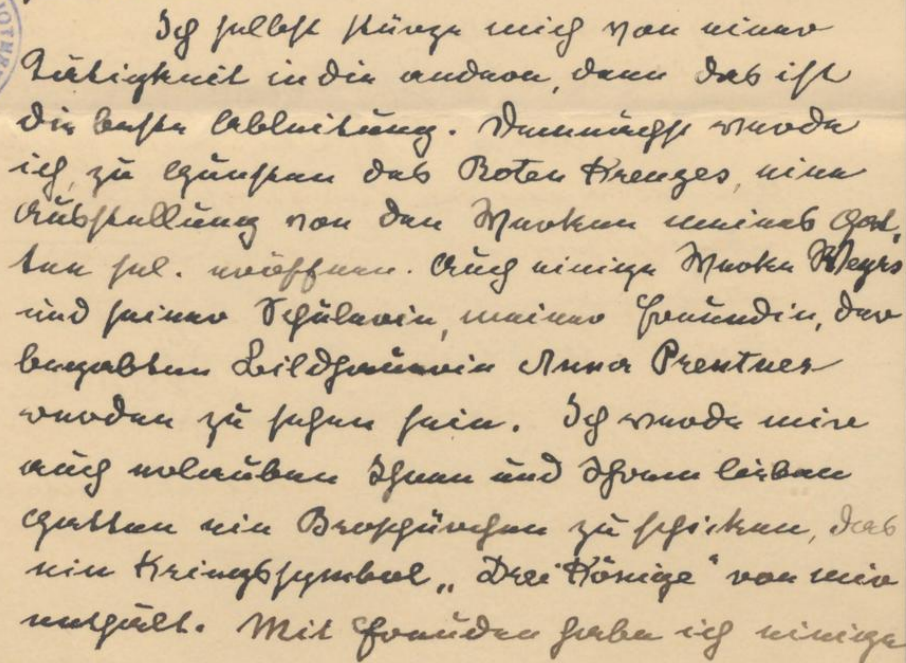 Ich selbst stürze mich von einer
Tätigkeit in die andere, denn das ist
die beste Ableitung. Demnächst werde
ich, zu Gunsten des Roten Kreuzes, eine
Ausstellung von den Werken meines Gat-
ten sel. eröffnen. Auch einige Werke Weyrs
und seiner Schülerin, meiner Freundin, der
begabten Bildhauerin Anna Prentner
werden zu sehen sein. Ich werde mir
auch erlauben Ihnen und Ihrem lieben
Gatten ein Broschürchen zu schicken, das
ein Kriegssymbol „Drei Könige" von mir
enthält. Mit Freuden habe ich einige